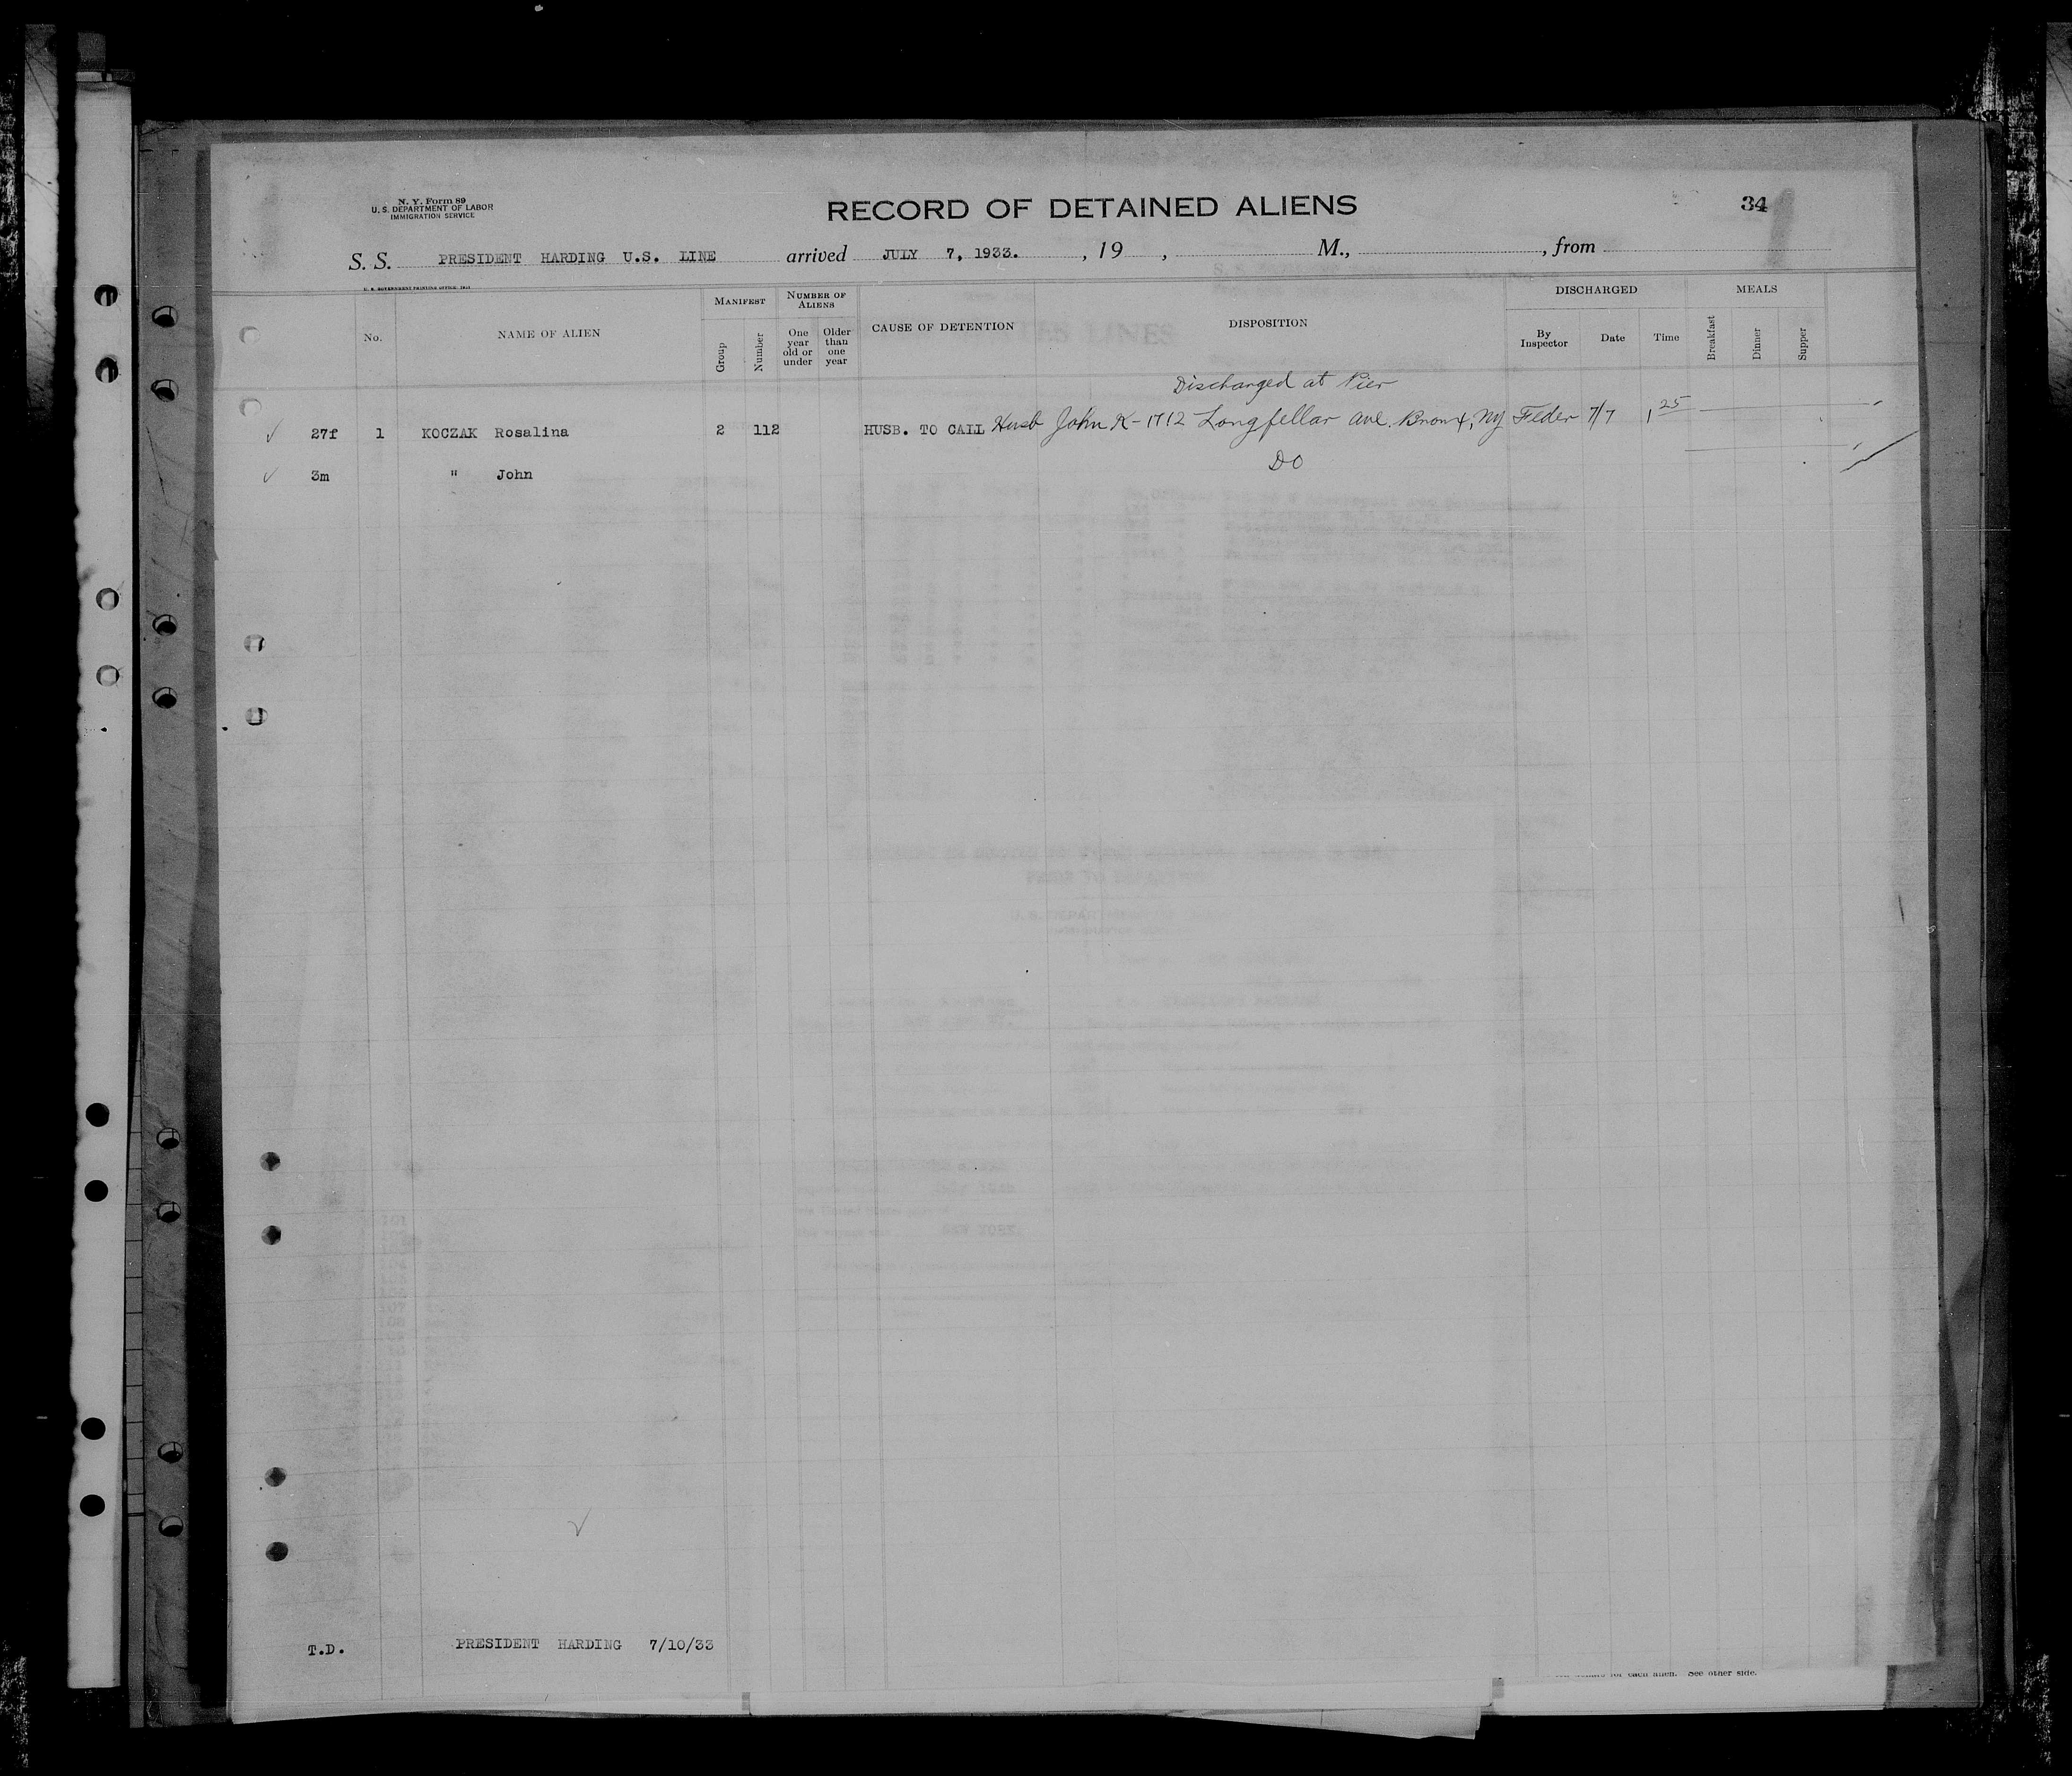 N. Y. Form 89
U. S. DEPARTMENT OF LABOR
IMMIGRATION SERVICE
RECORD OF DETAINED ALIENS
34
S. S. PRESIDENT HARDING U.S. LINE arrived JULY 7, 1933. , 19 , M., , from
U. S. GOVERNMENT PRINTING OFFICE: 1931
No.
NAME OF ALIEN
MANIFEST
Group
Number
NUMBER OF ALIENS
One year old or under
Older than one year
CAUSE OF DETENTION
DISPOSITION
DISCHARGED
By Inspector
Date
Time
MEALS
Breakfast
Dinner
Supper
Discharged at Pier
27f 1 KOCZAK Rosalina 2 112 HUSB. TO CALL Husb John K - 1712 Longfellar ave. Bronx, NY Feder 7/7 1 25
3m " John DO
T.D. PRESIDENT HARDING 7/10/33
for each alien. See other side.